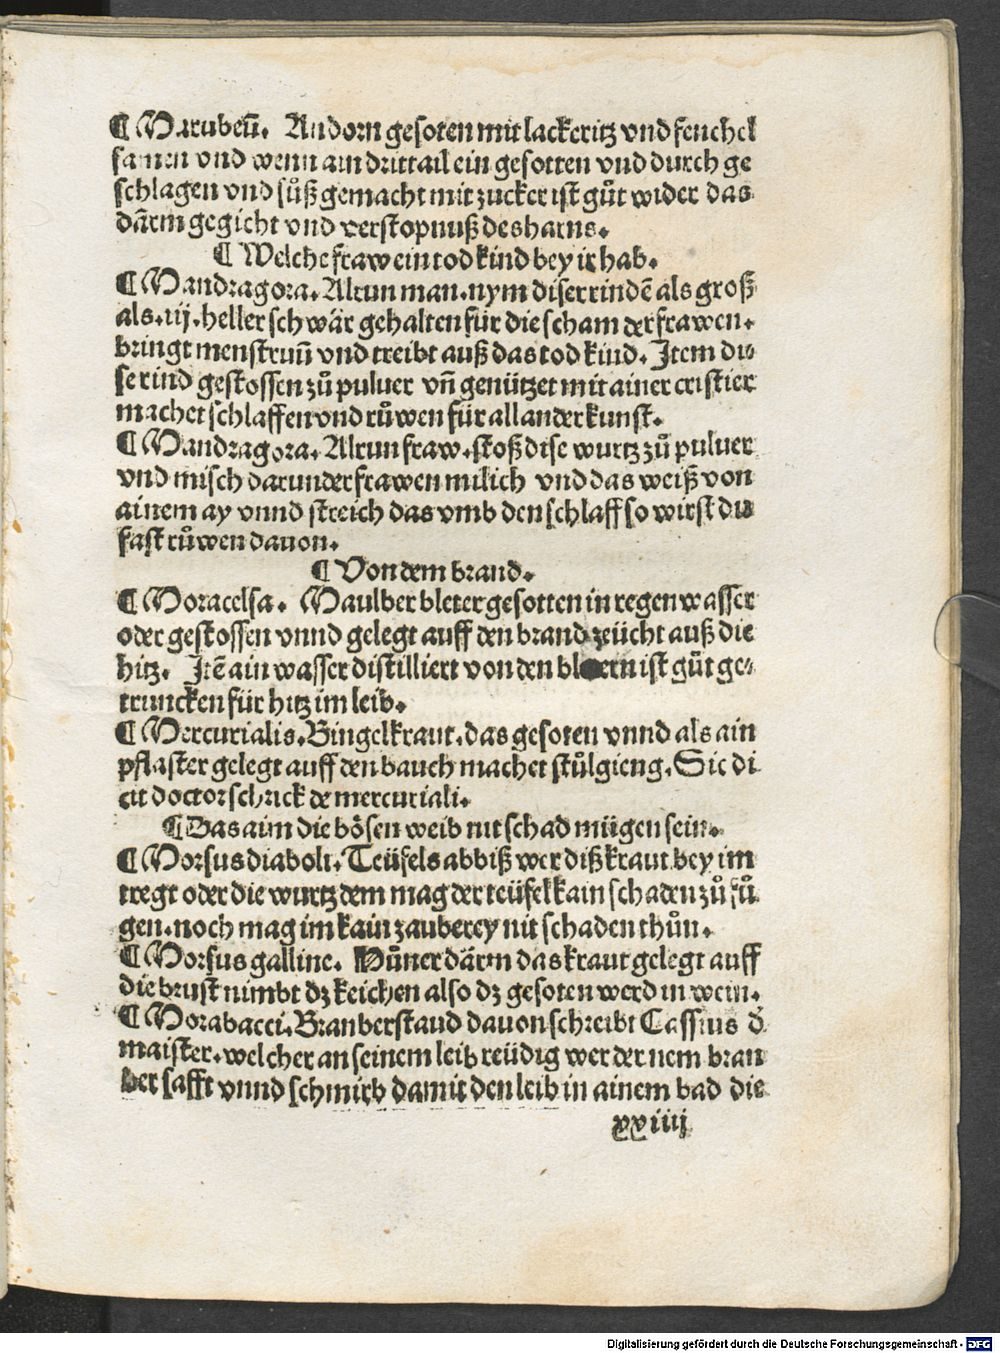 ¶ Marubeū. Andorn gesoten mit lackeritz vnd fenchel
samen vnd wenn ain drittail ein gesotten vnd durch ge
schlagen vnd süß gemacht mit zucker ist gůt wider das
därm gegicht vnd verstopnuß des harns.
¶ Welche fraw ein tod kind bey ir hab.
¶ Mandragora. Alrun man. nym diser rindē als groß
als .iij. heller schwär gehalten für die scham der frawen.
bringt menstruū vnd treibt auß das tod kind. Item di⸗
se rind gestossen zů puluer vñ genützet mit ainer cristier
machet schlaffen vnd růwen für all ander kunst.
¶ Mandragora. Alrun fraw. stoß dise wurtz zů puluer
vnd misch darunder frawen milich vnd das weiß von
ainem ay vnnd streich das vmb den schlaff so wirst du
fast růwen dauon.
¶ Von dem brand.
¶ Moracelsa. Maulber bleter gesotten in regen wasser
oder gestossen vnnd gelegt auff den brand zeücht auß die
hitz. Itē ain wasser distilliert von den ist gůt ge⸗
truncken für hitz im leib.
¶ Mercurialis. Bingelkraut. das gesoten vnnd als ain
pflaster gelegt auff den bauch machet stůlgieng. Sic di
cit doctor schrick de mercuriali.
¶ Das aim die bösen weib nit schad mügen sein.
¶ Morsus diaboli. Teüfels abbiß wer diß kraut bey im
tregt oder die wurtz dem mag der teüfel kain schaden zů fů
gen. noch mag im kain zauberey nit schaden thůn.
¶ Morsus galline. Hůner därm das kraut gelegt auff
die brust nimbt dz keichen also dz gesoten werd in wein.
¶ Morabacci. Branberstaud dauon schreibt Cassius d̕
maister. welcher an seinem leib reüdig wer der nem bran
ber safft vnnd schmirb damit den leib in ainem bad die
xxiiij
Digitalisierung gefördert durch die Deutsche Forschungsgemeinschaft - DFG